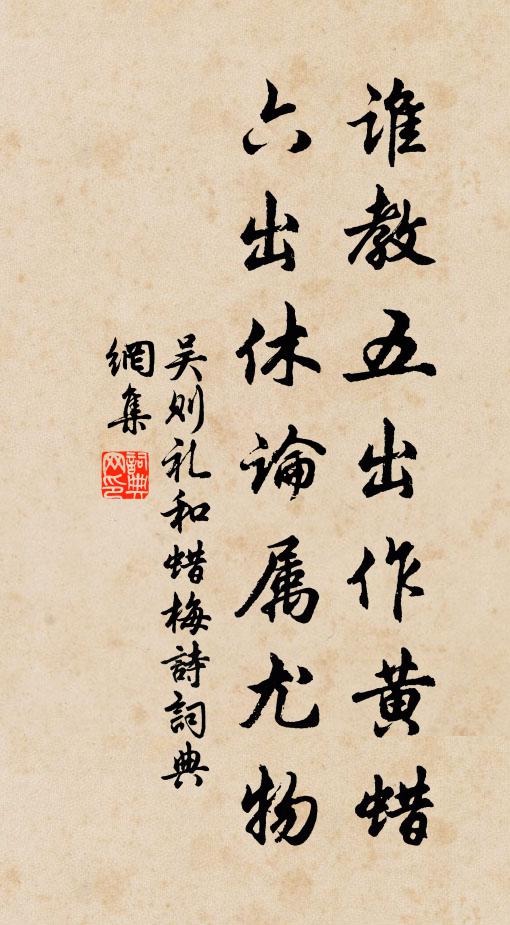 谁教五出作黄蜡
六出休論属尤物
吴则礼和蜡梅詩詞典
網集
詞典
网印